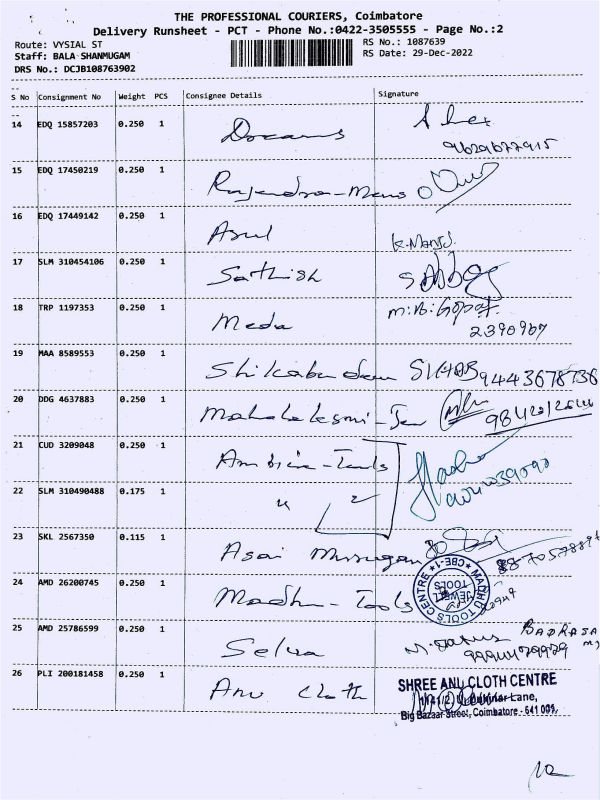 THE PROFESSIONAL COURIERS, Coimbatore
Delivery Runsheet - PCT - Phone No.:0422-3505555 - Page No.:2
Route: VYSIAL ST
RS No.: 1087639
Staff: BALA SHANMUGAM
RS Date: 29-Dec-2022
DRS No.: DCJB108763902
S No Consignment No Weight PCS Consignee Details Signature
14 EDQ 15857203 0.250 1 Dreams
9629677915
15 EDQ 17450219 0.250 1 Rajendra-Mens
16 EDQ 17449142 0.250 1 Asul
K.Manoj.
17 SLM 310454106 0.250 1 Sathish
18 TRP 1197353 0.250 1 Meda
2390967
19 MAA 8589553 0.250 1 9443678736
20 DDG 4637883 0.250 1
21 CUD 3209048 0.250 1 Ambica-Tools
22 SLM 310490488 0.175 1 "
23 SKL 2567350 0.115 1 Asai Murugan
24 AMD 26200745 0.250 1 Madhu-Tools
MADHU TOOLS CENTRE CBE-1
JEWELL TOOLS
25 AMD 25786599 0.250 1 Selva
26 PLI 200181458 0.250 1 Anu Cloth
SHREE ANU CLOTH CENTRE
Lane,
Big Bazaar Street, Coimbatore - 641 001.